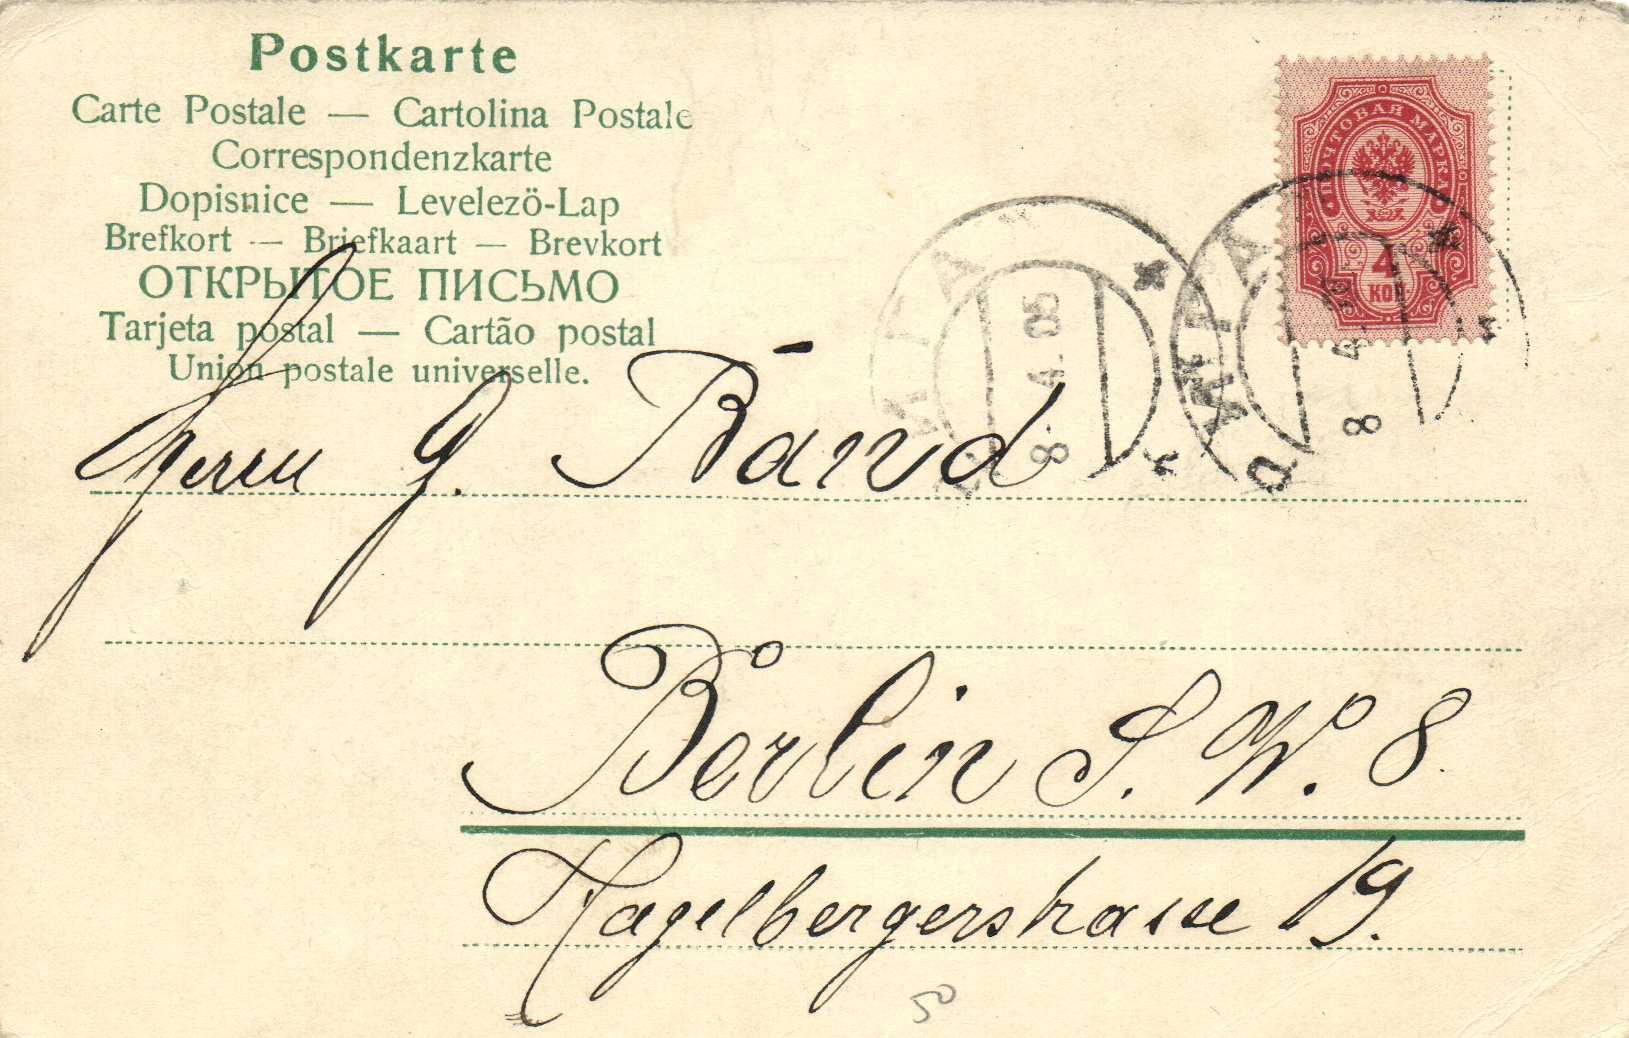 Postkarte
Carte Postale — Cartolina Postale
Correspondenzkarte
Dopisnice — Levelezö-Lap
Brefkort — Briefkaart — Brevkort
ОТКРЫТОЕ ПИСЬМО
Tarjeta postal — Cartão postal
Union postale universelle.
ПОЧТОВАЯ МАРКА
4
КОП
РИГА
8. 4. 05
РИГА
8 4 05
Herrn G. Band
Berlin S. W. 8.
Hagelbergerstrasse 19.
50